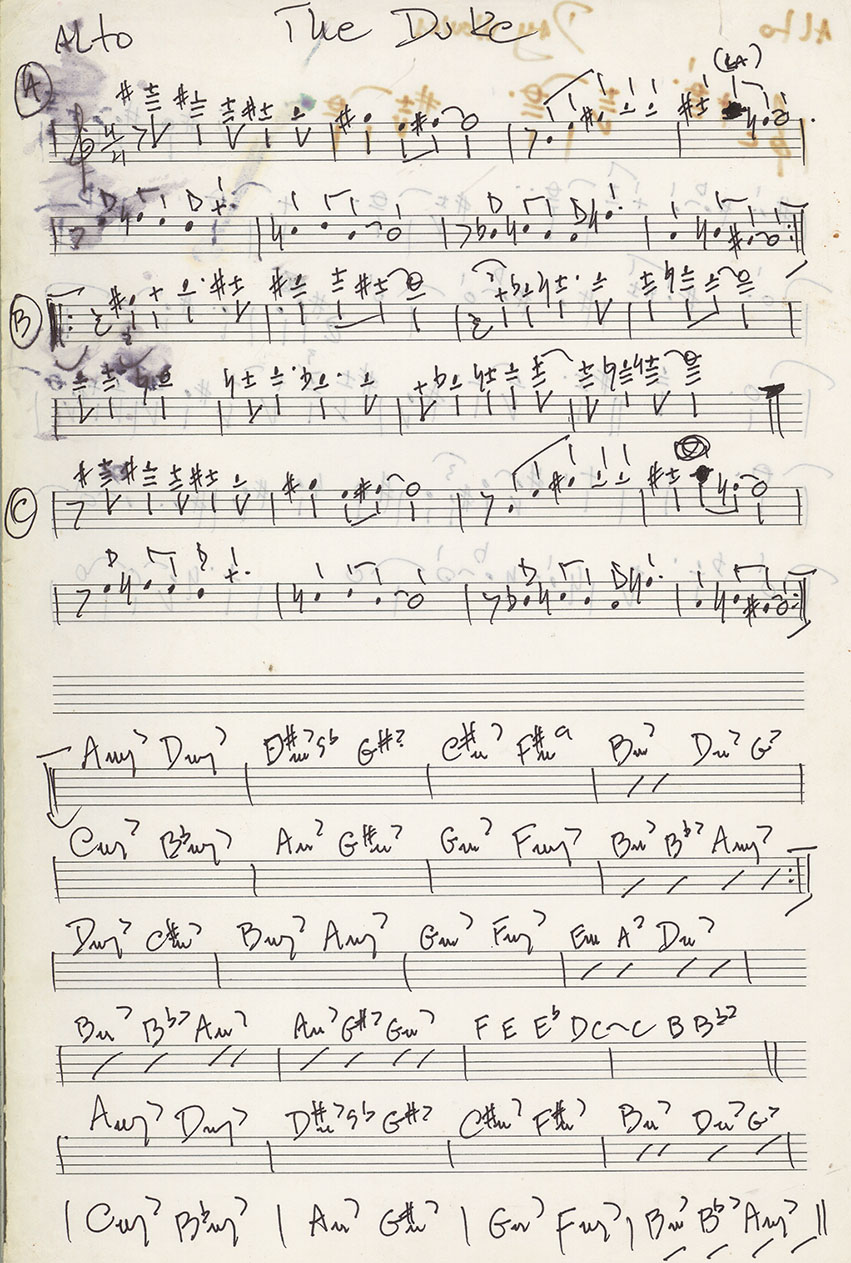 ALTO The Duke
A
(LA)
B
C
Amj7 Dmj7 D#m7 5b G#7 C#m7 F#m9 Bm7 Dm7 G7
Cmj7 Bbmj7 Am7 G#m7 Gm7 Fmj7 Bm7 Bb7 Amj7
Dmj7 C#m7 Bmj7 Amj7 Gm7 Fmj7 Em A7 Dm7
Bm7 Bb7 Am7 Am7 G#7 Gm7 F E Eb D C~C B Bb7
Amj7 Dmj7 D#m7 5b G#7 C#m7 F#m7 Bm7 Dm7 G7
| Cmj7 Bbmj7 | Am7 G#m7 | Gm7 Fmj7 | Bm7 Bb7 Amj7 ||